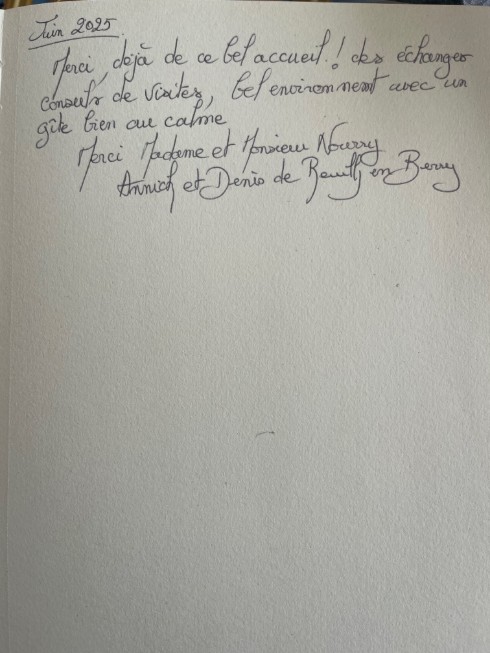 Juin 2025
Merci, déjà de ce bel accueil ! des échanges
conseils de visites, bel environnement avec un
gîte bien au calme
Merci Madame et Monsieur Nourry
Annick et Denis de Reuilly en Berry